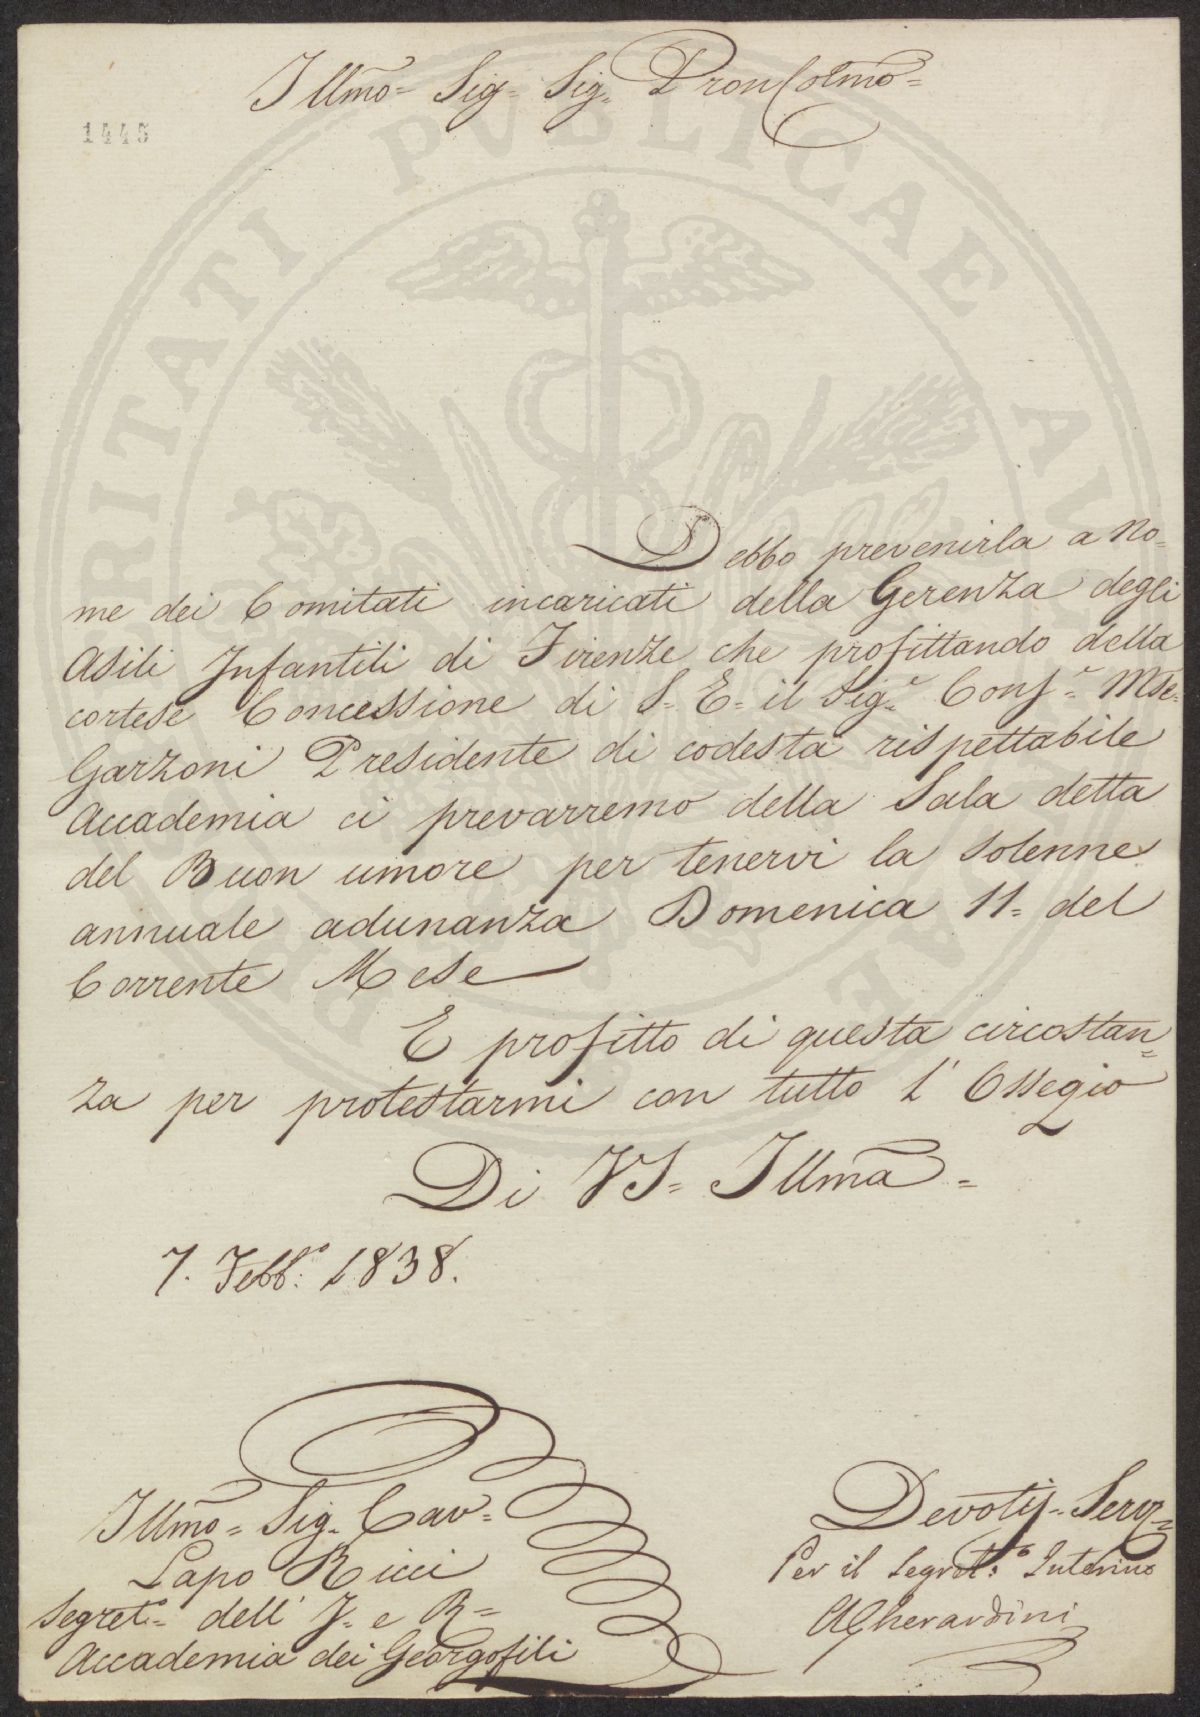 Illmo= Sig= Sig= Pron Colmo=
1445
Debbo prevenirla a No=
me dei Comitati incaricati della Gerenza degli
Asili Infantili di Firenze che profittando della
cortese Concessione di S= E= il Sig.r Cons.r= Mse=
Garzoni Presidente di codesta rispettabile
Accademia ci prevarremo della Sala detta
del Buon umore per tenervi la solenne
annuale adunanza Domenica 11= del
Corrente Mese
E profitto di questa circostan=
za per protestarmi con tutto l' Ossegio
Di VS= Illma=
7. Febb.o 1838.
Illmo= Sig= Cav=
Lapo Ricci
Segret.o= dell' I= e R=
Accademia dei Georgofili
Devotis= Serv=
Per il Segret.o Interino
A Gherardini
PROSPERITATI PVBLICAE AVGENDAE